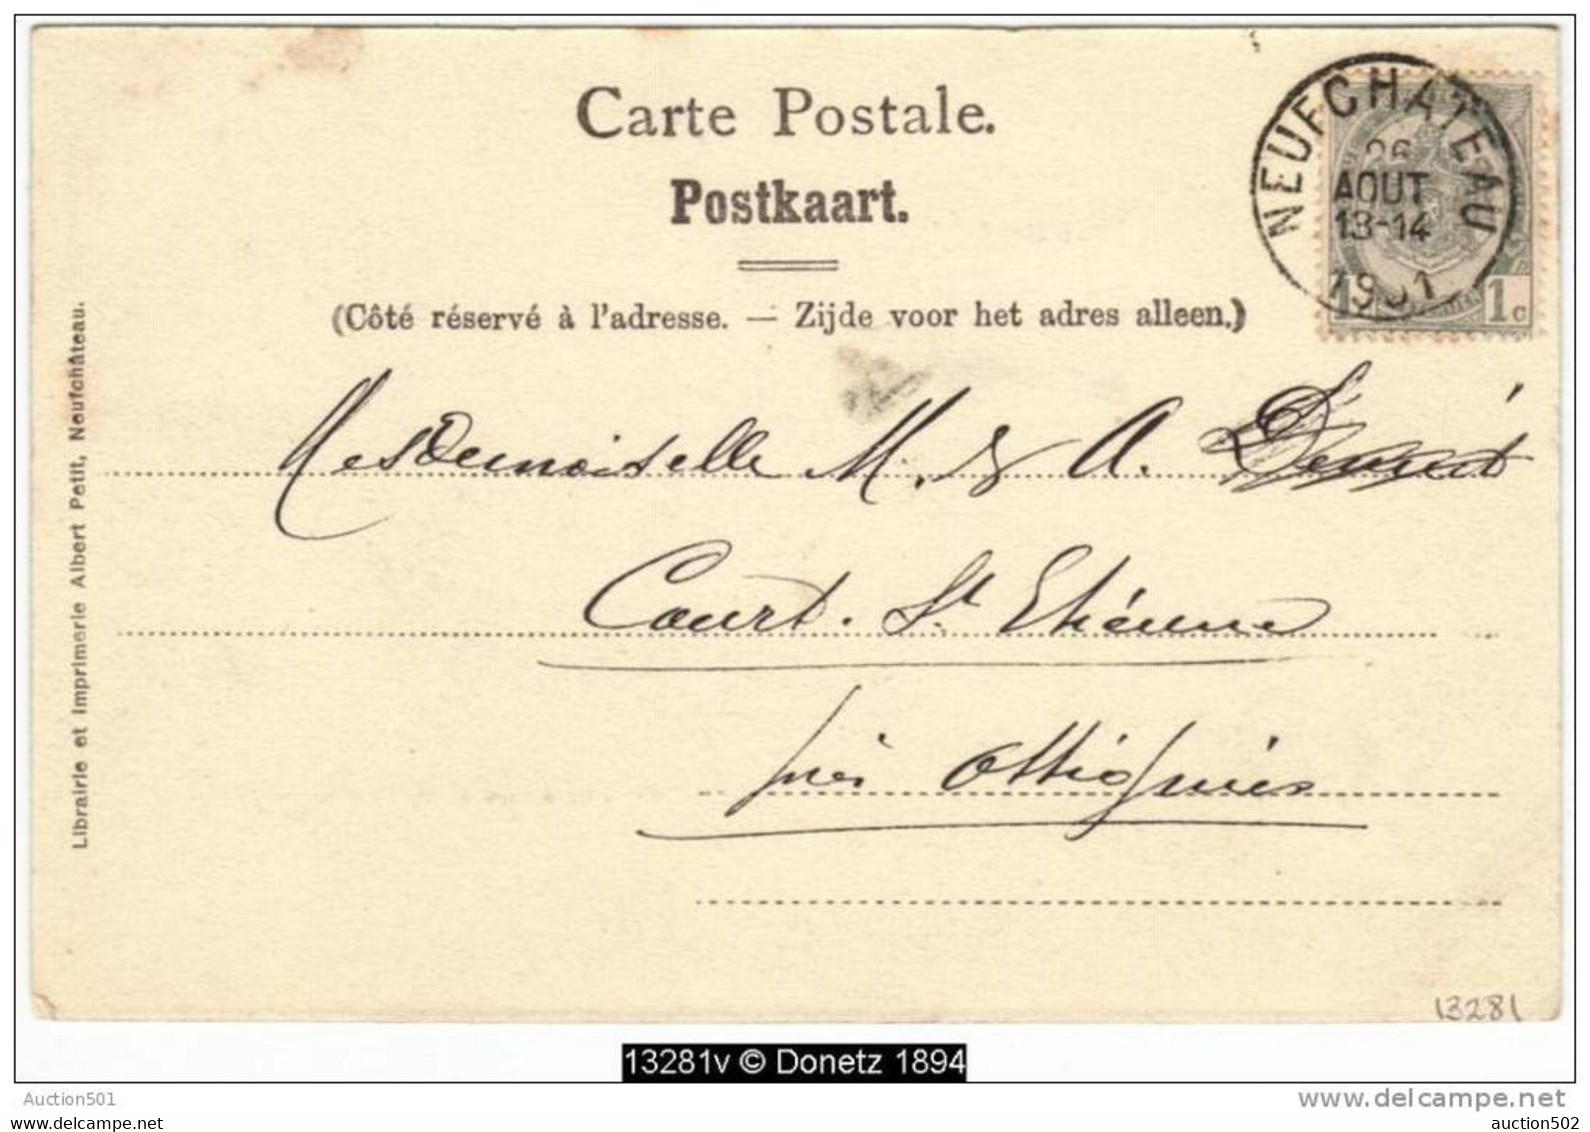 Carte Postale.
Postkaart.
(Côté réservé à l'adresse. — Zijde voor het adres alleen.)
NEUFCHATEAU
26
AOUT
13-14
1901
1c
Librairie et Imprimerie Albert Petit, Neufchâteau.
Mesdemoiselle M. & A.
Court. St Etienne
près Ottignies
13281
13281v © Donetz 1894
Auction501
www.delcampe.net
auction502